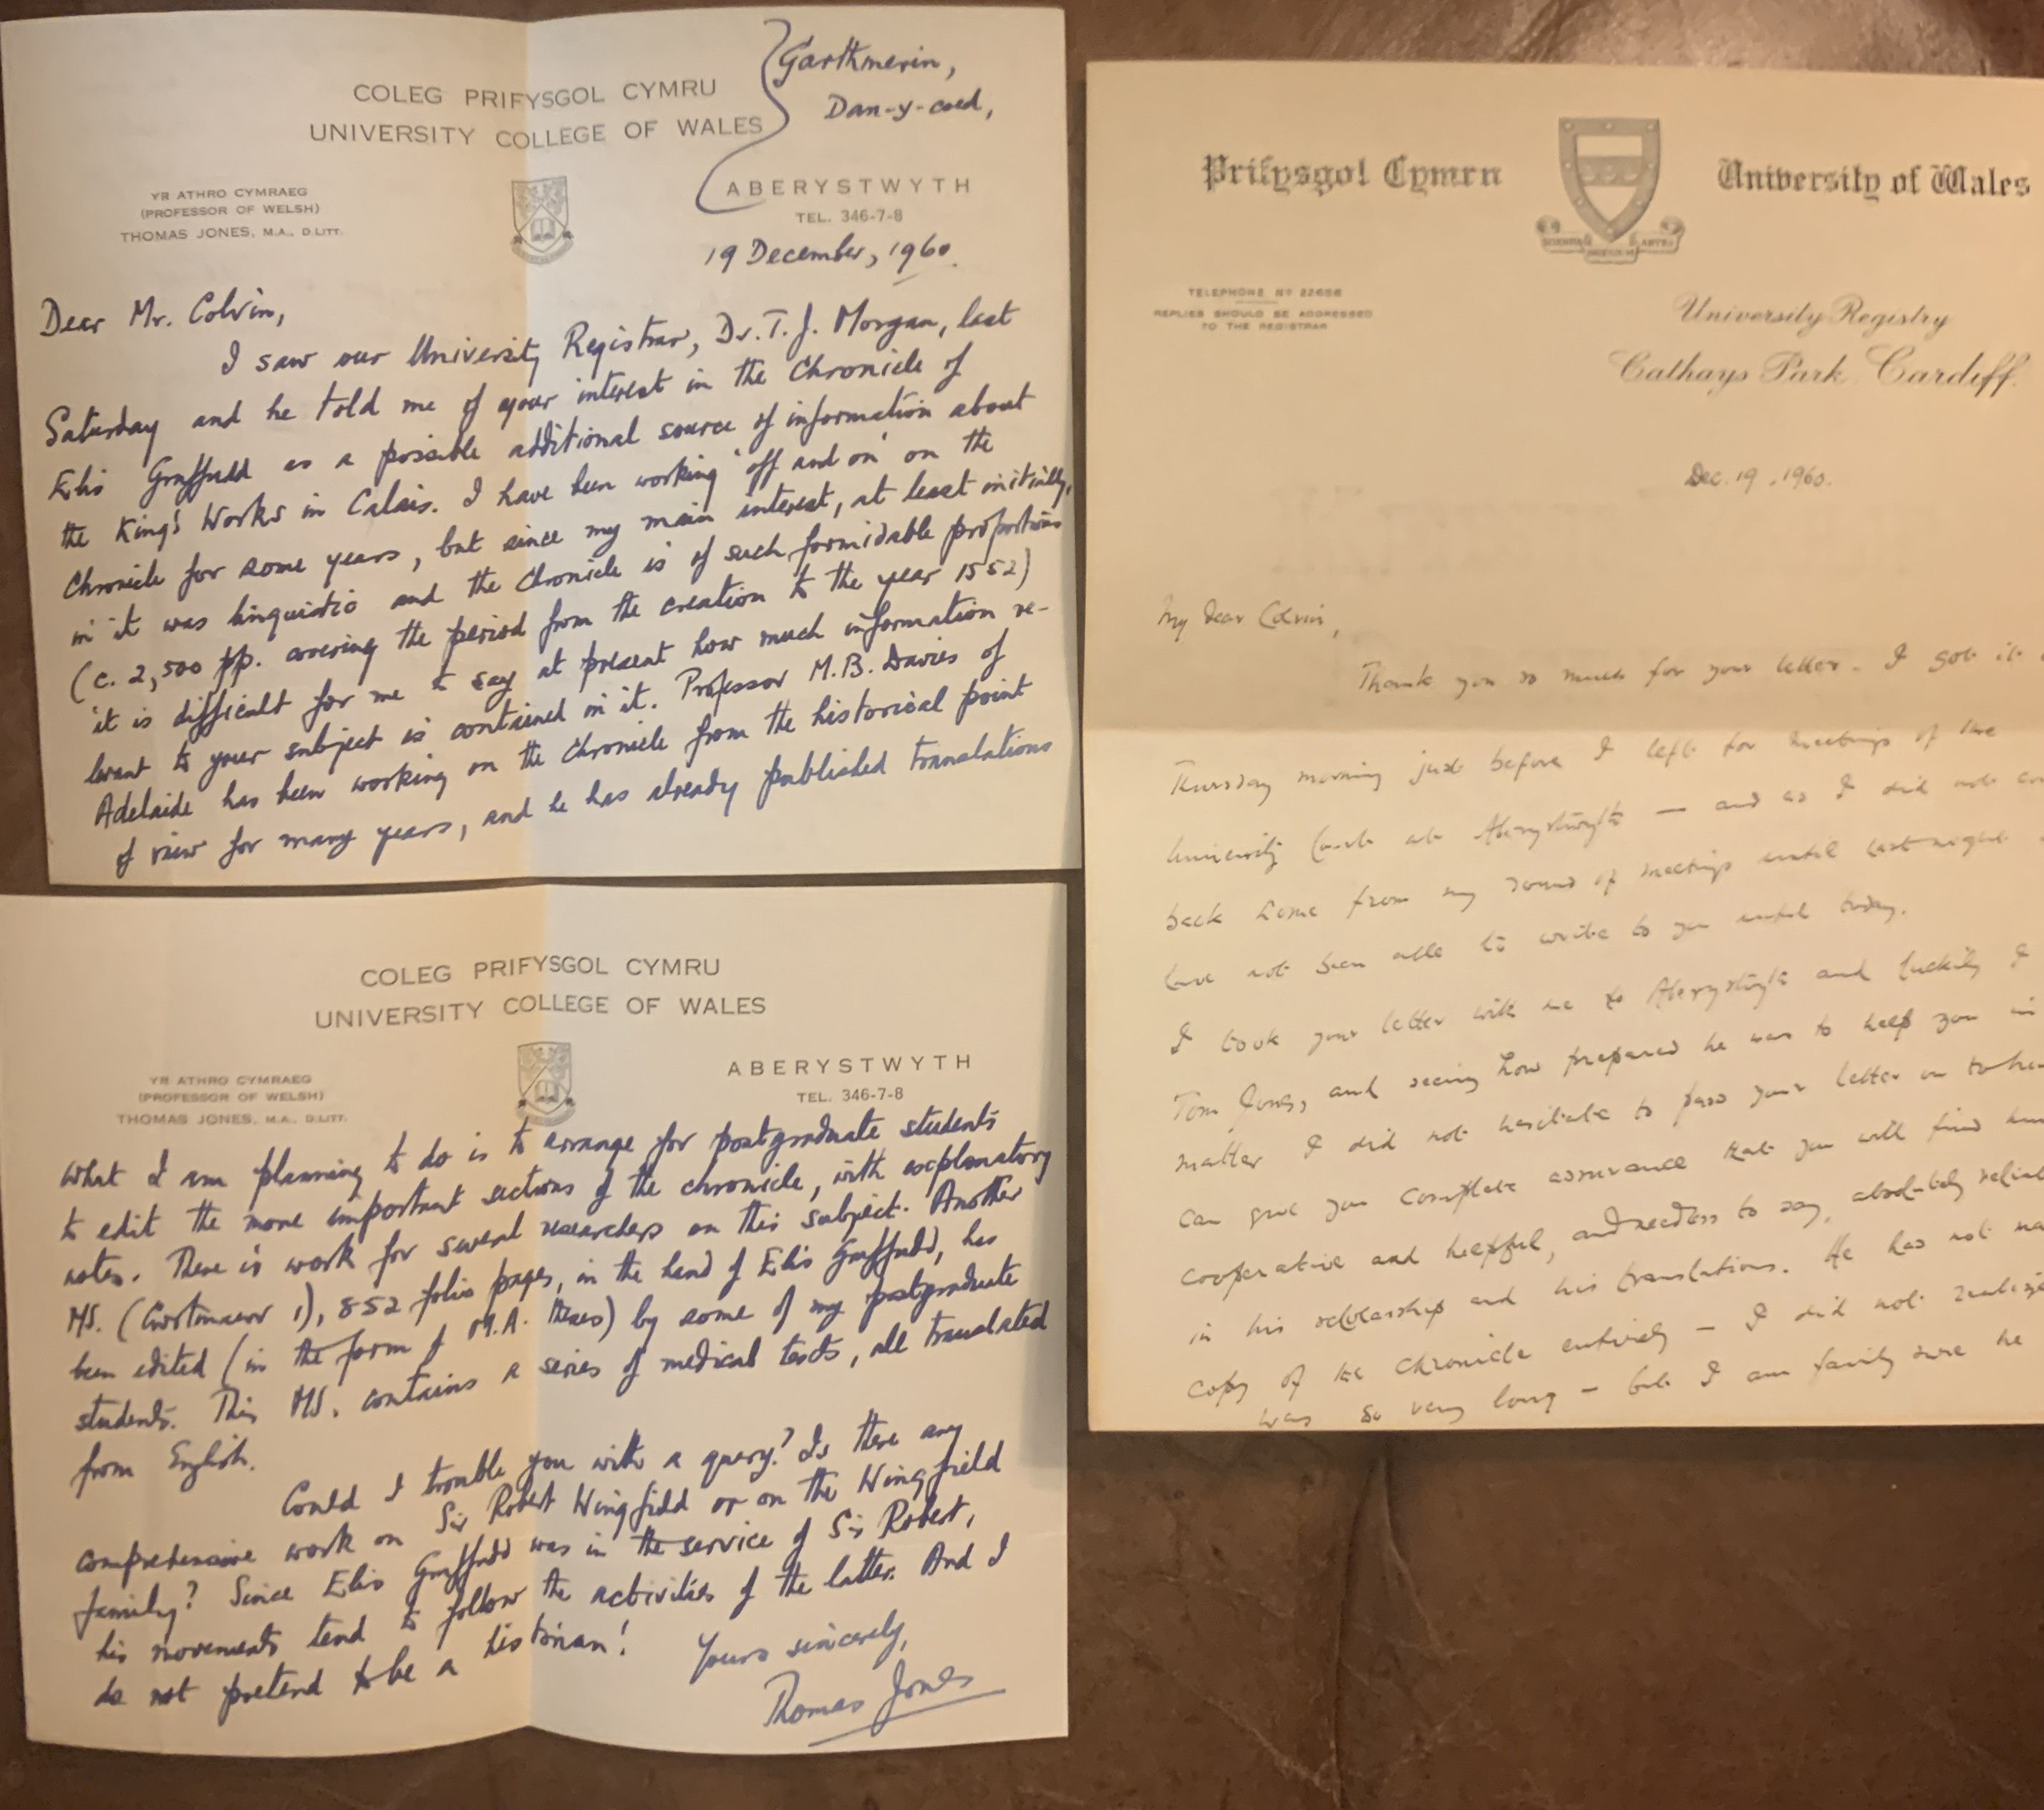 Garthmerin,
Dan-y-coed,
COLEG PRIFYSGOL CYMRU
UNIVERSITY COLLEGE OF WALES
YR ATHRO CYMRAEG
(PROFESSOR OF WELSH)
THOMAS JONES, M.A., D.LITT.
ABERYSTWYTH
TEL. 346-7-8
19 December, 1960.
Dear Mr. Colvin,
I saw our University Registrar, Dr. T. J. Morgan, last
Saturday and he told me of your interest in the Chronicle of
Elis Gruffudd as a possible additional source of information about
the King's Works in Calais. I have been working 'off and on' on the
Chronicle for some years, but since my main interest, at least initially,
in it was linguistic and the Chronicle is of such formidable proportions
(c. 2,500 pp. covering the period from the creation to the year 1552)
it is difficult for me to say at present how much information re-
levant to your subject is contained in it. Professor M.B. Davies of
Adelaide has been working on the Chronicle from the historical point
of view for many years, and he has already published translations
COLEG PRIFYSGOL CYMRU
UNIVERSITY COLLEGE OF WALES
YR ATHRO CYMRAEG
(PROFESSOR OF WELSH)
THOMAS JONES, M.A., D.LITT.
ABERYSTWYTH
TEL. 346-7-8
What I am planning to do is to arrange for postgraduate students
to edit the more important sections of the chronicle, with explanatory
notes. There is work for several researchers on this subject. Another
MS. (Cwrtmawr 1), 852 folio pages, in the hand of Elis Gruffudd, has
been edited (in the form of M.A. theses) by some of my postgraduate
students. This MS. contains a series of medical texts, all translated
from English.
Could I trouble you with a query? Is there any
comprehensive work on Sir Robert Wingfield or on the Wingfield
family? Since Elis Gruffudd was in the service of Sir Robert,
his movements tend to follow the activities of the latter. And I
do not pretend to be a historian!
Yours sincerely,
Thomas Jones
Prifysgol Cymru
University of Wales
SCIENTIA INGENIUM ARTES
TELEPHONE Nº 22656
REPLIES SHOULD BE ADDRESSED
TO THE REGISTRAR
University Registry
Cathays Park, Cardiff.
Dec. 19. 1960.
My dear Colvin,
Thank you so much for your letter - I got it
Thursday morning just before I left for meetings of the
University Court at Aberystwyth — and as I did not
back home from my round of meetings until last night
have not been able to write to you until today.
I took your letter with me to Aberystwyth and luckily I
Tom Jones, and seeing how prepared he was to help you in
matter I did not hesitate to pass your letter on to
can give you complete assurance that you will find
cooperative and helpful, and needless to say, absolutely
in his scholarship and his translations. He has not
copy of the Chronicle entirely — I did not
was so very long — but I am fairly sure he